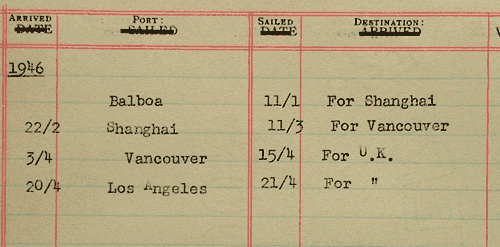 ARRIVED PORT: SAILED DESTINATION:
DATE SAILED DATE ARRIVED
1946
Balboa 11/1 For Shanghai
22/2 Shanghai 11/3 For Vancouver
3/4 Vancouver 15/4 For U.K.
20/4 Los Angeles 21/4 For "